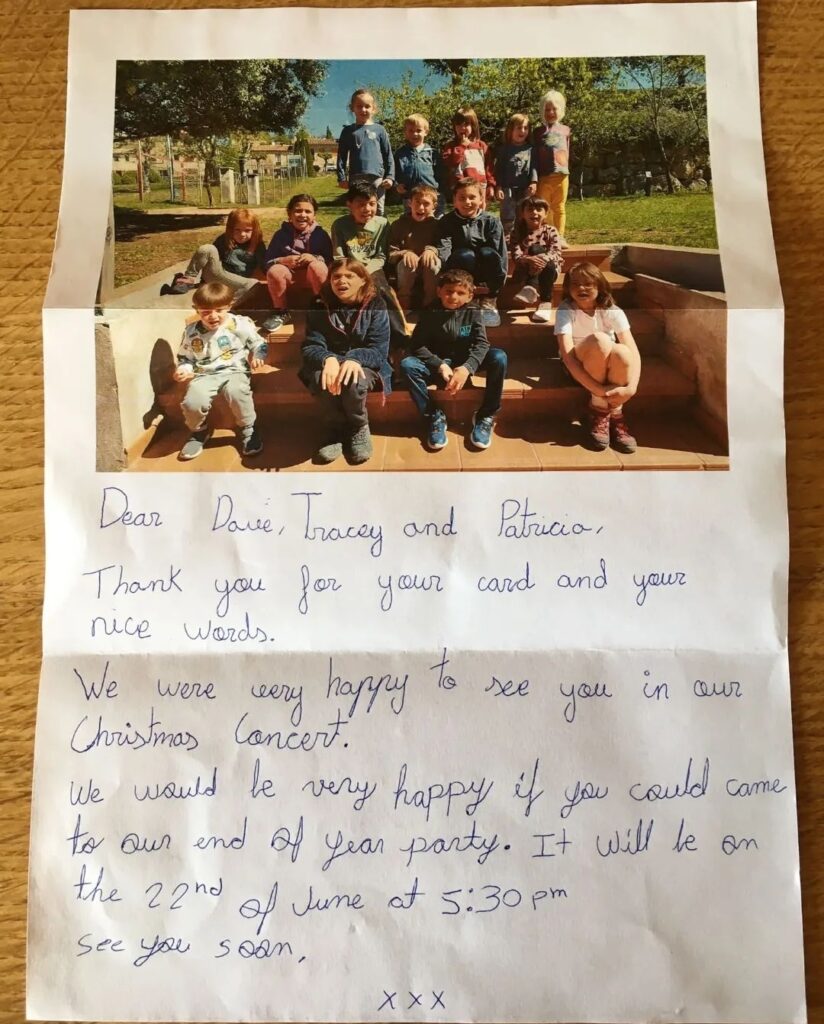 Dear Dave, Tracey and Patricia,
Thank you for your card and your
nice words.
We were very happy to see you in our
Christmas Concert.
We would be very happy if you could came
to our end of year party. It will be on
the 22nd of June at 5:30 pm
see you soon,
x x x